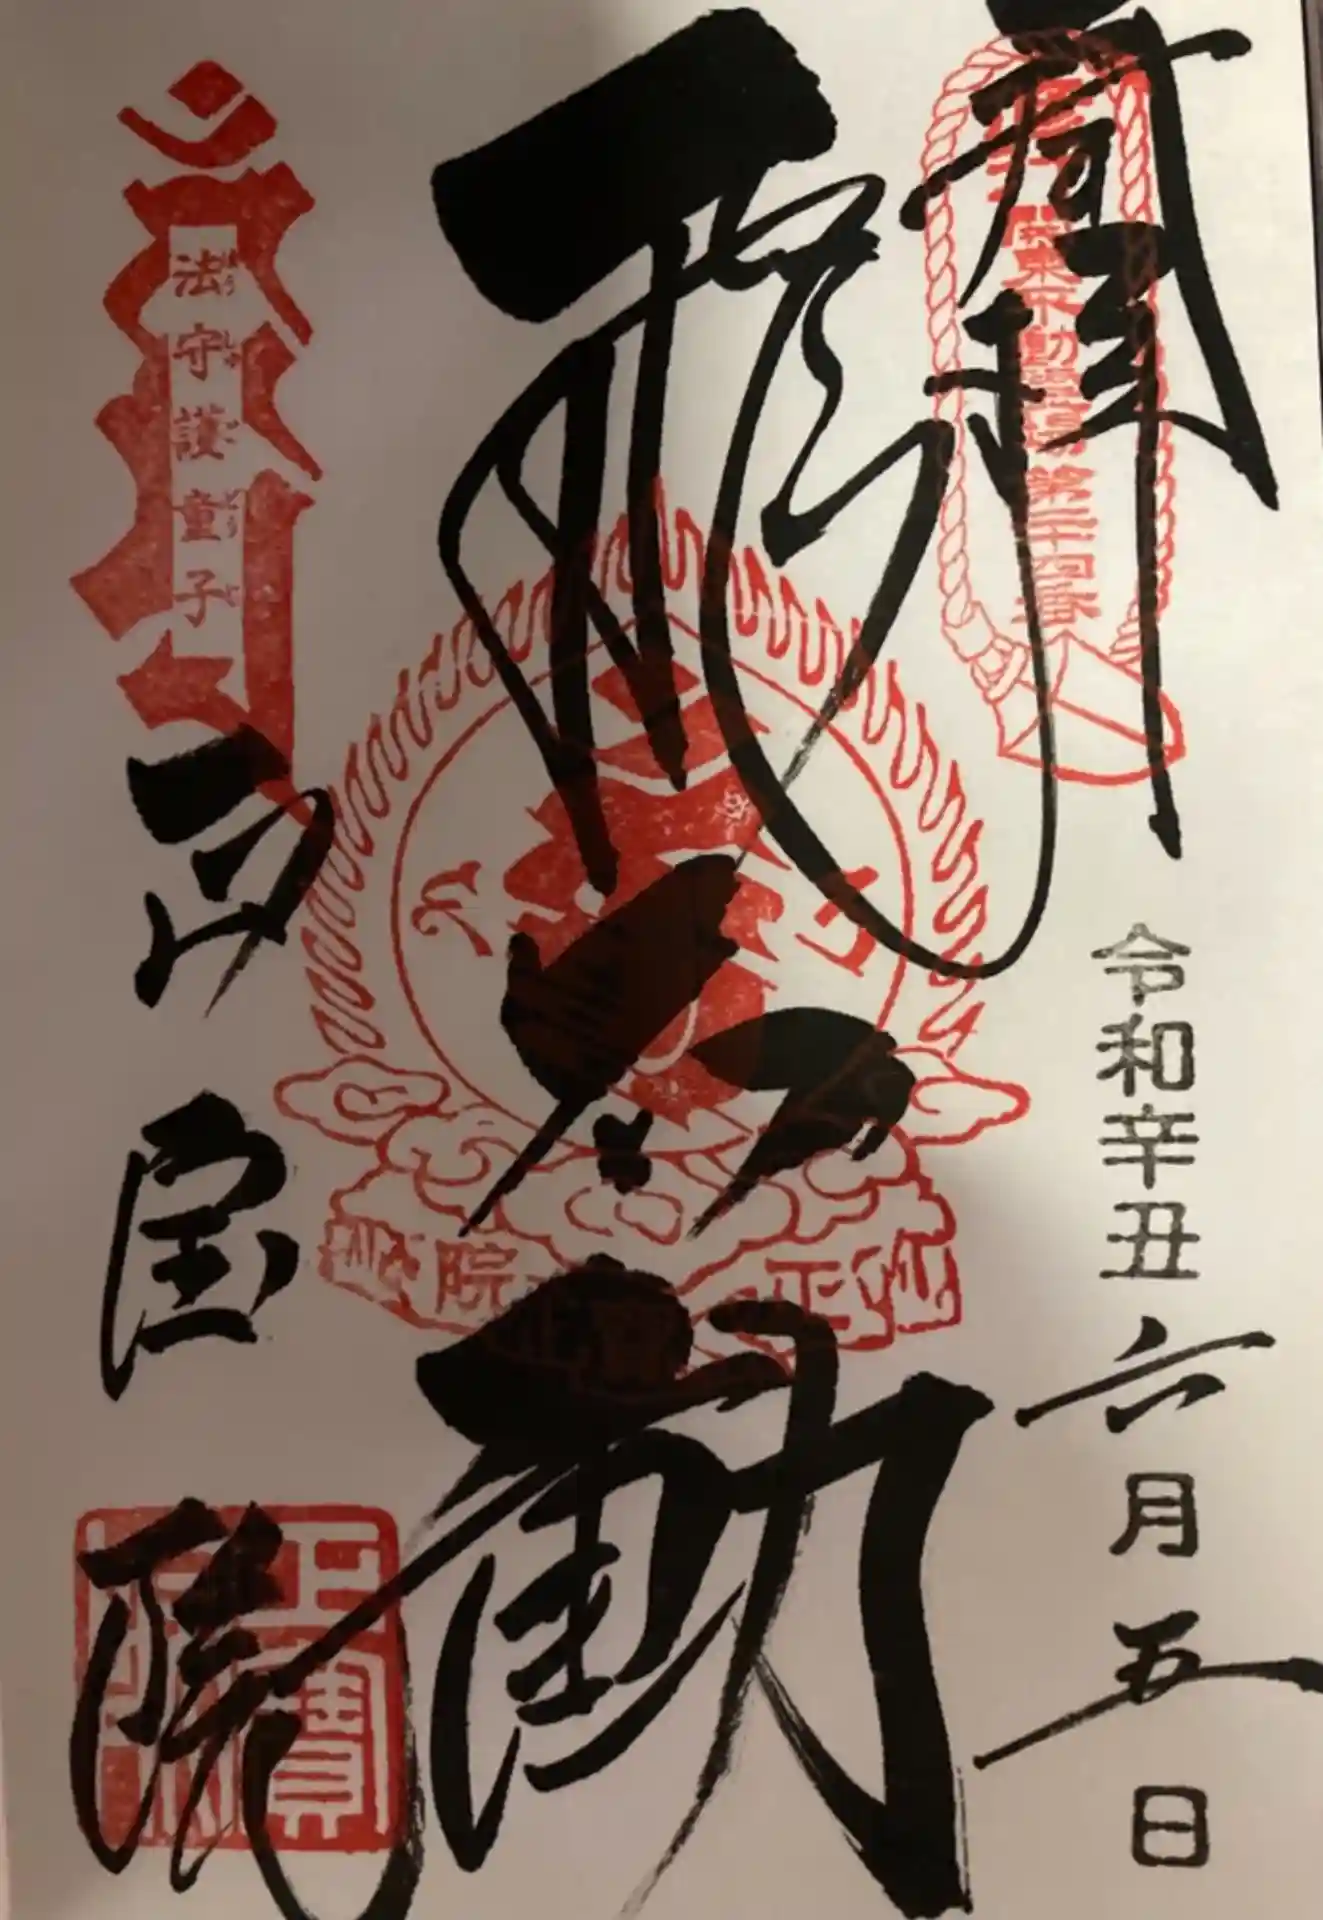 奉拝
関東不動霊場第二十四番
令和辛丑六月五日
飛不動
法守護童子
正宝院
正寶院印